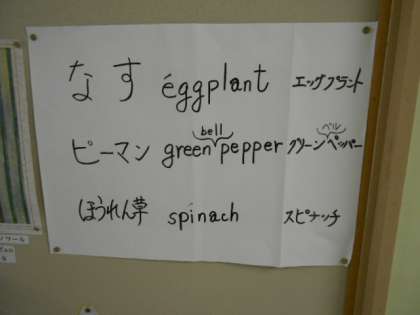 なす éggplant エッグプラント
bell ベル
ピーマン green pepper グリーンペッパー
ほうれん草 spinach スピナッチ